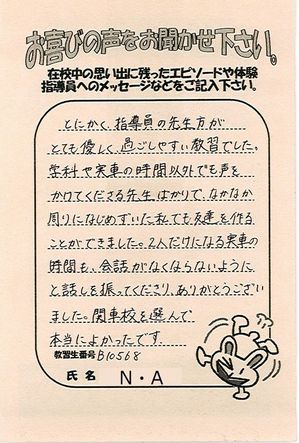 お喜びの声をお聞かせ下さい。
在校中の思い出に残ったエピソードや体験
指導員へのメッセージなどをご記入下さい。
とにかく、指導員の先生方が
とても優しく、過ごしやすい教習でした。
学科や実車の時間以外でも声を
かけてくださる先生ばかりで、なかなか
周りになじめずいた私でも友達を作る
ことができました。2人だけになる実車の
時間も、会話がなくならないように
と話しを振ってくださり、ありがとうござい
ました。関車校を選んで
本当によかったです。
教習生番号 B10568
氏名 N・A